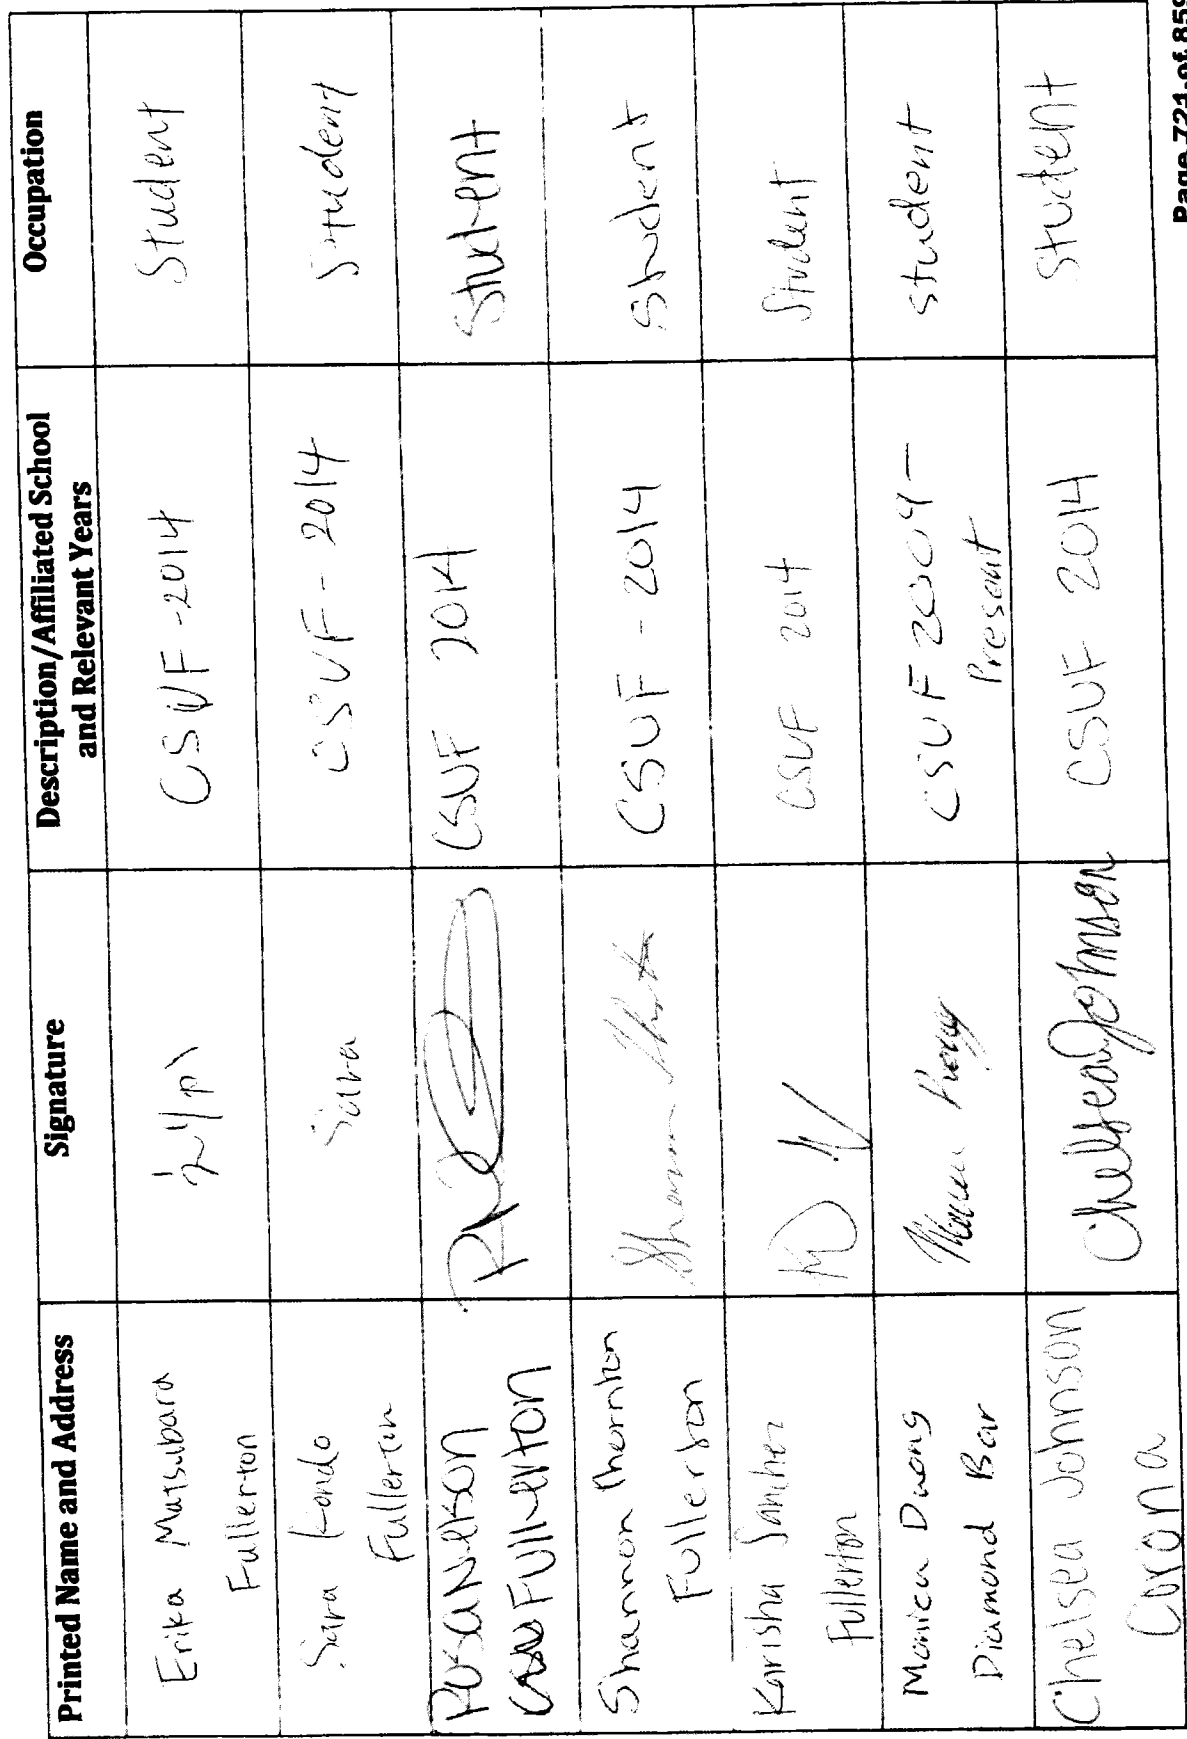 Printed Name and Address
Signature
Description/Affiliated School
and Relevant Years
Occupation
Erika Matsubara
Fullerton
CSUF - 2014
Student
Sara Kondo
Fullerton
Sara
CSUF - 2014
Student
Rosa Nelson
Fullerton
CSUF 2014
Student
Shannon Thornton
Fullerton
CSUF - 2014
Student
Karisha Sanchez
Fullerton
CSUF 2014
Student
Monica Duong
Diamond Bar
CSUF 2009 -
Present
student
Chelsea Johnson
Corona
Chelsea Johnson
CSUF 2014
Student
Page 721 of 859